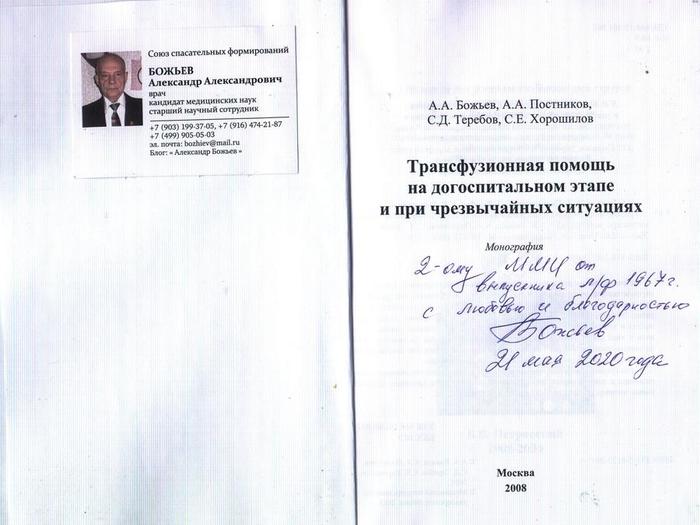 Союз спасательных формирований
БОЖЬЕВ
Александр Александрович
врач
кандидат медицинских наук
старший научный сотрудник
+7 (903) 199-37-05, +7 (916) 474-21-87
+7 (499) 905-05-03
эл. почта: bozhiev@mail.ru
Блог: « Александр Божьев »
А.А. Божьев, А.А. Постников,
С.Д. Теребов, С.Е. Хорошилов
Трансфузионная помощь
на догоспитальном этапе
и при чрезвычайных ситуациях
Монография
2-ому ММИ от
выпускника л/ф 1967 г.
с любовью и благодарностью
Божьев
21 мая 2020 года
Москва
2008